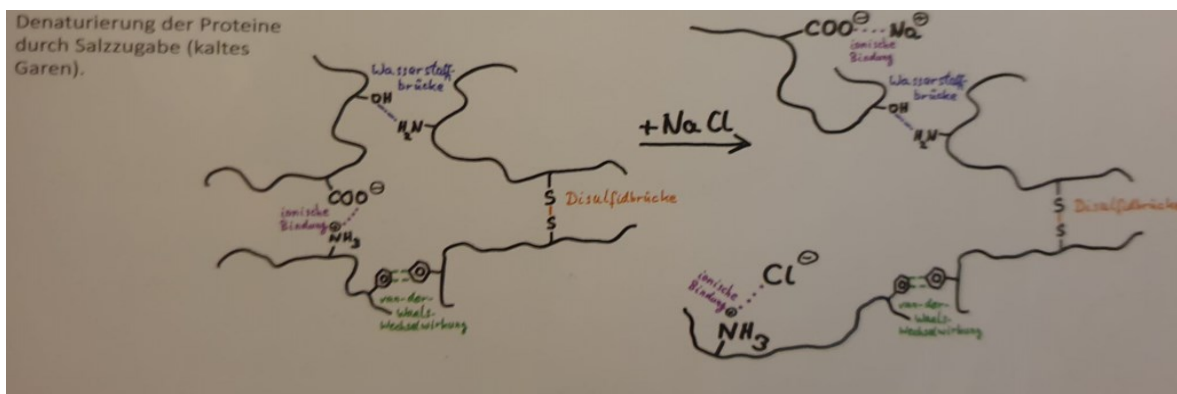 Denaturierung der Proteine
durch Salzzugabe (kaltes
Garen).
Wasserstoff-
brücke
OH
H₂N
COO⊖
ionische
Bindung
⊕
NH₃
S
S
Disulfidbrücke
van-der-
Waals-
Wechselwirkung
+NaCl
COO⊖ Na⊕
ionische
Bindung
Wasserstoff-
brücke
OH
H₂N
S
S
Disulfidbrücke
ionische
Bindung
Cl⊖
⊕
NH₃
van-der-
Waals-
Wechselwirkung